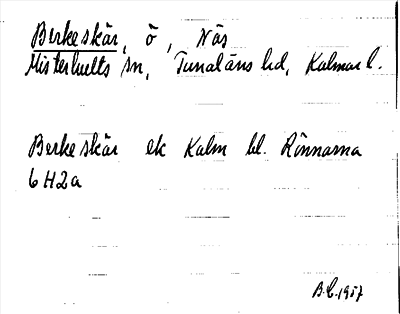 Berkeskär, ö, Näs
Misterhults sn, Tunaläns hd, Kalmar l.
Berkeskär ek Kalm bl. Rönnarna
6H2a
B.L. 1957